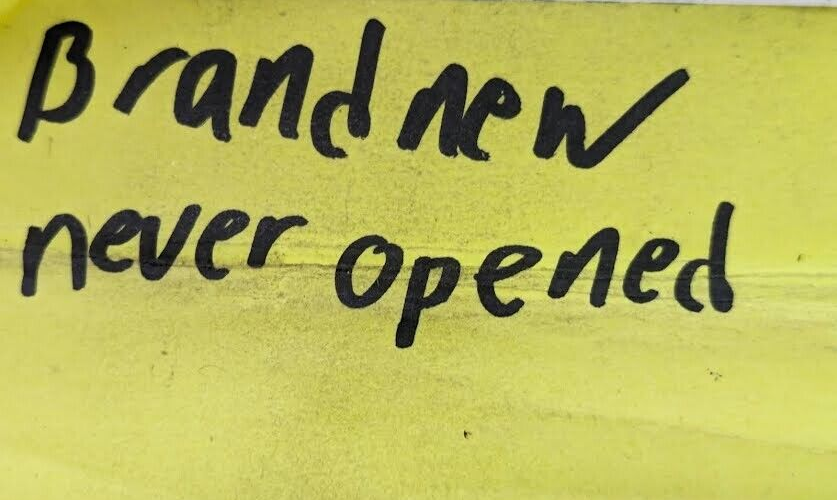 Brand new
never opened